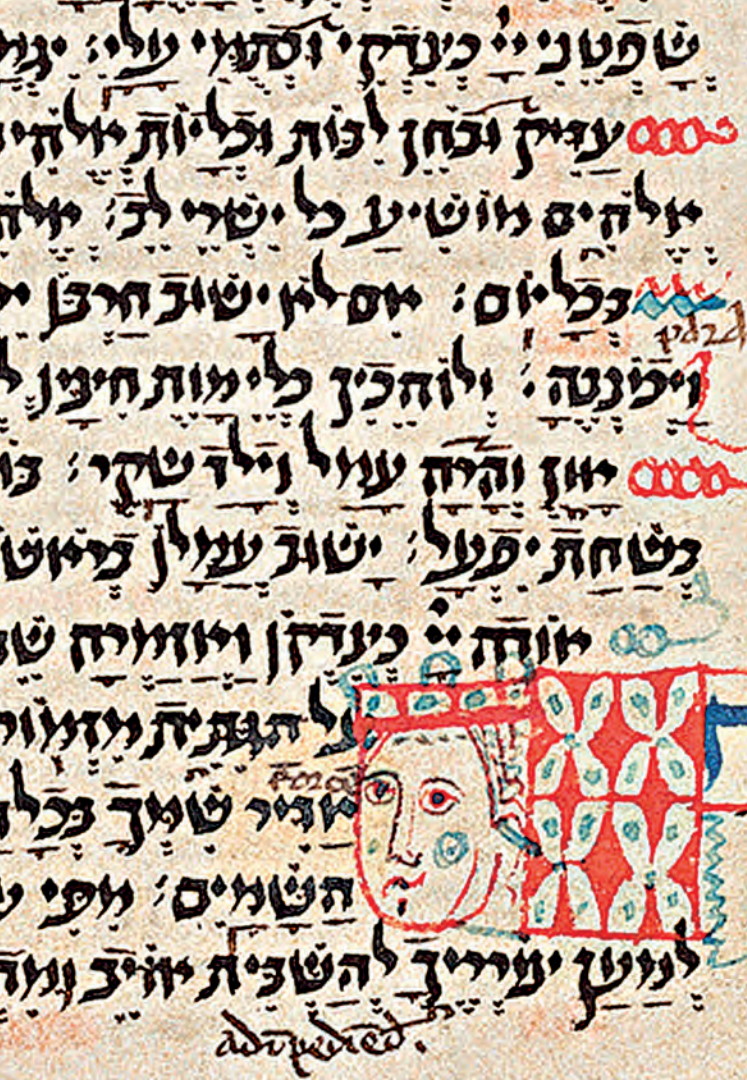 שפטני יי כצדקי וכתמי עלי׃ יגמ
צדיק ובחן לבות וכליות אלהי
אלהים מושיע כל ישרי לב׃ אלה
בכל יום׃ אם לא ישוב חרבו י
ויכוננה׃ ולו הכין כלי מות חיציו ל
און והרה עמל וילד שקר׃ בו
בשחת יפעל׃ ישוב עמלו בראש
אודה יי כצדקו ואזמרה ש
על הגתית מזמו
אדיר שמך בכל ה
השמים׃ מפי ע
למען צורריך להשבית אויב ומת